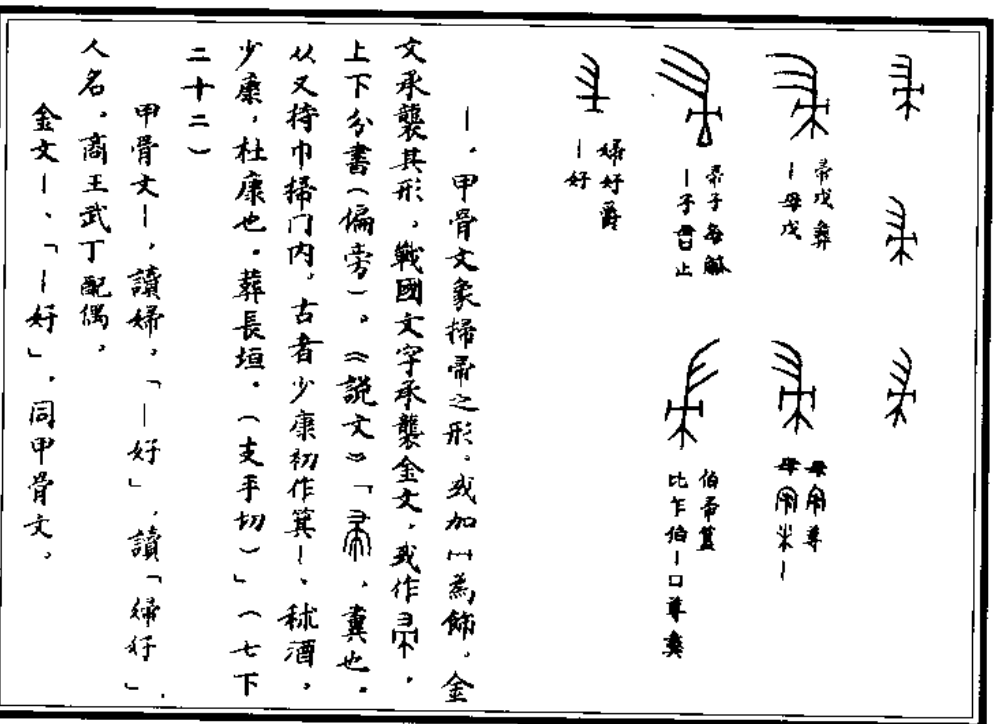 帚戊彝
｜母戊
帚子每觶
｜子止
母尊
母｜
伯帚簋
比乍伯｜口尊彝
婦好爵
｜好
｜，甲骨文象掃帚之形。或加冂為飾。金
文承襲其形，戰國文字承襲金文，或作，
上下分書（偏旁）。《説文》「，糞也。
从又持巾掃门内。古者少康初作箕｜、秫酒，
少康，杜康也。葬長垣。（支手切）」（七下
二十二）
甲骨文｜，讀婦，「｜好」，讀「婦好」
人名，商王武丁配偶，
金文｜、「｜好」，同甲骨文。